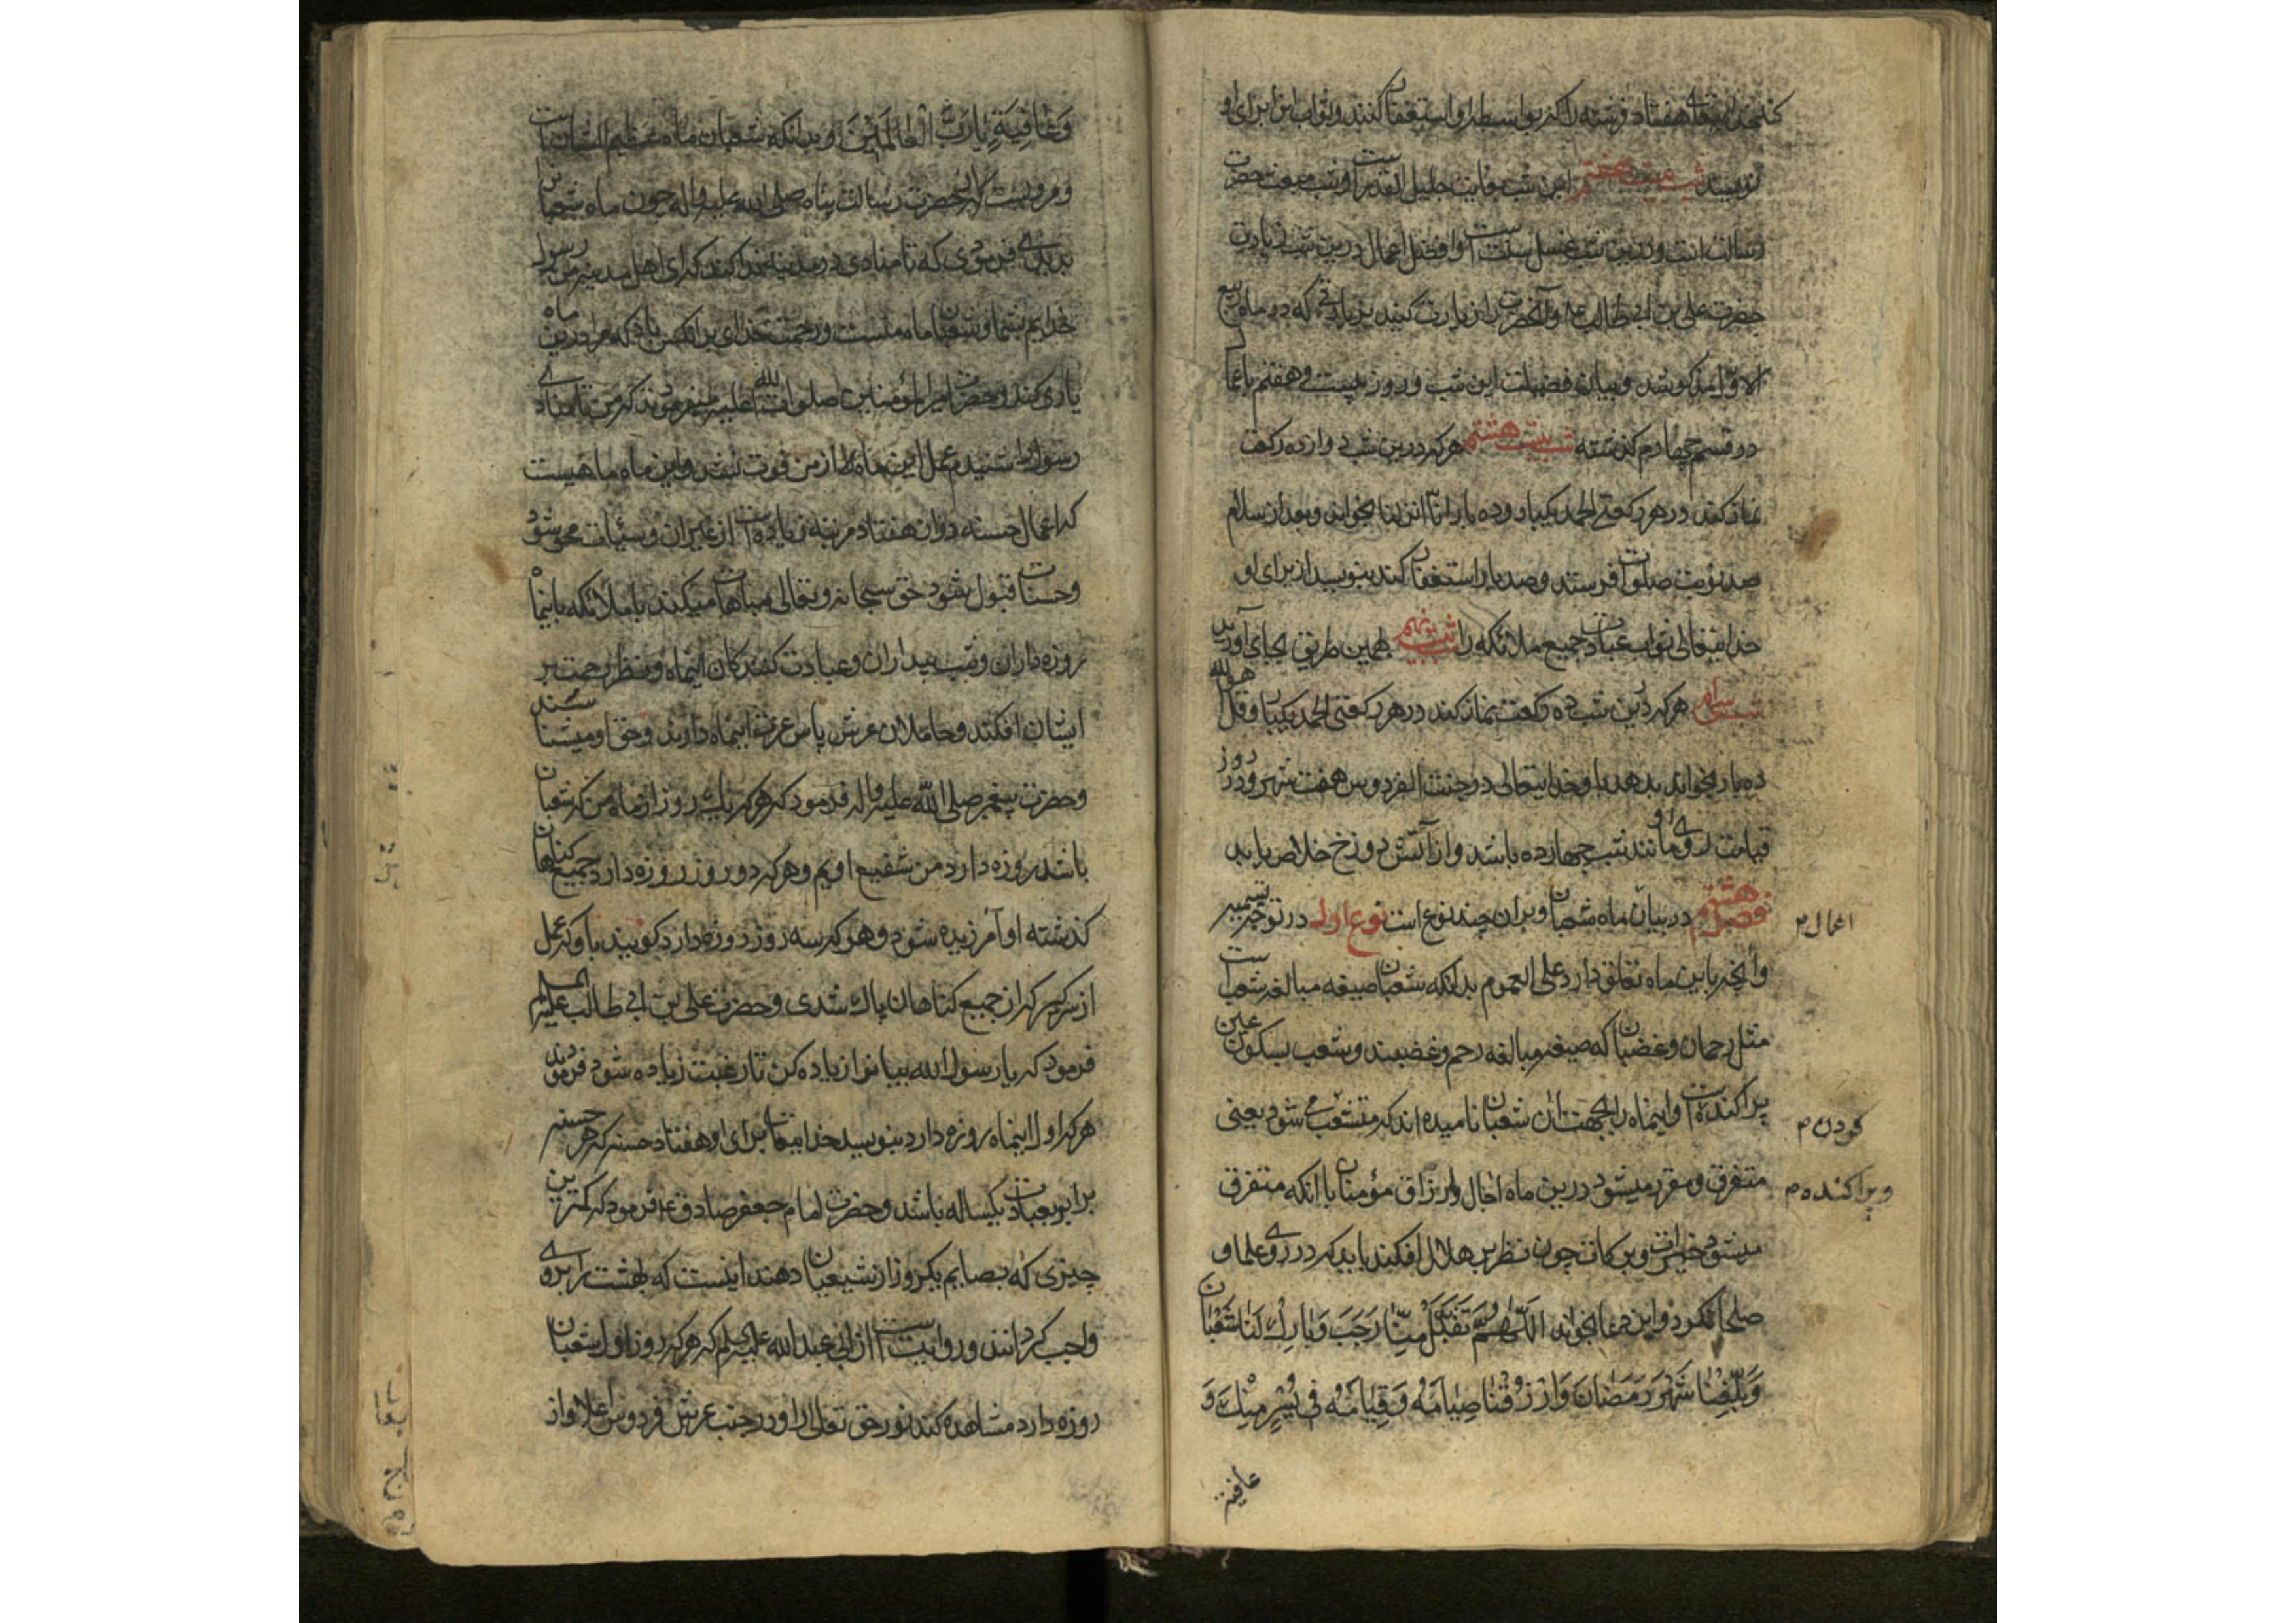 کند خدایتعالی هفتاد فرشته را که بواسطه او استغفار کنند و ثواب این برای او
نویسند شب بیست هفتم این شب بغایت جلیل القدر است و شب مبعث حضرت
رسالت است و درین شب غسل سنت است و افضل اعمال درین شب زیارت
حضرت علی بن ابی طالب ع و آنحضرت را زیارت کنند بزیارتی که در ماه ربیع
الاول مذکور شد و بیان فضیلت این شب و روز بیست و هفتم با اعمال
در قسم چهارم گذشته شب بیست هشتم هر که درین شب دوازده رکعت
نماز کند در هر رکعتی الحمد یکبار و ده بار انا انزلنا بخواند و بعد از سلام
صد نوبت صلوات فرستد و صد بار استغفار کند بنویسد از برای او
خدایتعالی ثواب عبادت جمیع ملائکه را شب بیست نهم بهمین طریق بجای آورید
شب سی ام هر که درین شب ده رکعت نماز کند در هر رکعتی الحمد یکبار و قل هو الله
ده بار بخواند بدهد او را خدایتعالی در جنت الفردوس هفت شهر و در روز
قیامت روی او مانند شب چهارده باشد و از آتش دوزخ خلاص یابد
فصل هشتم در بیان ماه شعبان و بران چند نوع است نوع اول در توجیه تسمیه
اعمال
و آنچه باین ماه تعلق دارد علی العموم بدانکه شعبان صیغه مبالغه شعب است
مثل رحمان و غضبان که صیغه مبالغه رحم و غضبند و شعب بسکون عین
پراکنده است و اینماه را بجهت آن شعبان نامیده اند که متشعب می شود یعنی
کردن
متفرق و مقرر میشود درین ماه اجال و ارزاق مؤمنان با آنکه متفرق
و پراکنده
میشود خیرات و برکات چون نظر بر هلال افکند باید که در روی علما و
صلحا نگرد و این دعا بخواند اللهم تقبل منا رجب و بارک لنا شعبان
وَبَلِّغْنَا شَهْرَ رَمَضَانَ وَارْزُقْنَا صِيَامَهُ وَقِيَامَهُ فِي يُسْرٍ مِنْكَ وَ
عافیة
وَعَافِيَةٍ يَا رَبَّ الْعَالَمِينَ و بدانکه شعبان ماه عظیم الشان است
و مرویست که حضرت رسالت پناه صلی الله علیه و اله چون ماه شعبان
بدیدی فرمودی که تا منادی در مدینه ندا کند که ای اهل مدینه من رسول
خدایم بشما و شعبان ماه منست و رحمت خدای بر انکس باد که مرا درین ماه
یاری کند و حضرت امیر المؤمنین صلوات الله علیه میفرمودند که من تا منادی
رسول را شنیدم عمل این ماه از من فوت نشد و این ماه ماهیست
که اعمال حسنه در ان هفتاد مرتبه زیاده است از غیر ان و سیئات محو شود
و حسنات قبول شود حق سبحانه و تعالی مباهات میکند با ملائکه باینماه
روزه داران و شب بیداران و عبادت کنندکان اینماه و نظر رحمت بر
ایشان افکند و حاملان عرش پاس عزت اینماه دارند و حق او میشناسند
و حضرت پیغمبر صلی الله علیه و اله فرمود که هر که یک روز از ماه من که شعبان
باشد روزه دارد من شفیع اویم و هر که دو روز روزه دارد جمیع کناهان
کذشته او آمرزیده شود و هر که سه روز روزه دارد کویند باو که عمل
از سر گیر که از جمیع کناهان پاک شدی و حضرت علی بن ابی طالب علیه السلم
فرمود که یا رسول الله بیانرا زیاده کن تا رغبت زیاده شود فرمودند
هر که اول اینماه روزه دارد بنویسد خدایتعالی برای او هفتاد حسنه که هر حسنه
برابر بعبادت یکساله باشد و حضرت امام جعفر صادق ع فرمود که کمترین
چیزی که بصایم یکروز از شعبان دهند اینست که بهشت را بروی
واجب کردانند و روایتست از ابی عبدالله علیه السلم که هر که روز اول شعبان
روزه دارد مشاهده کند نور حق تعالی را و در جنب عرش فردوس اعلا و از